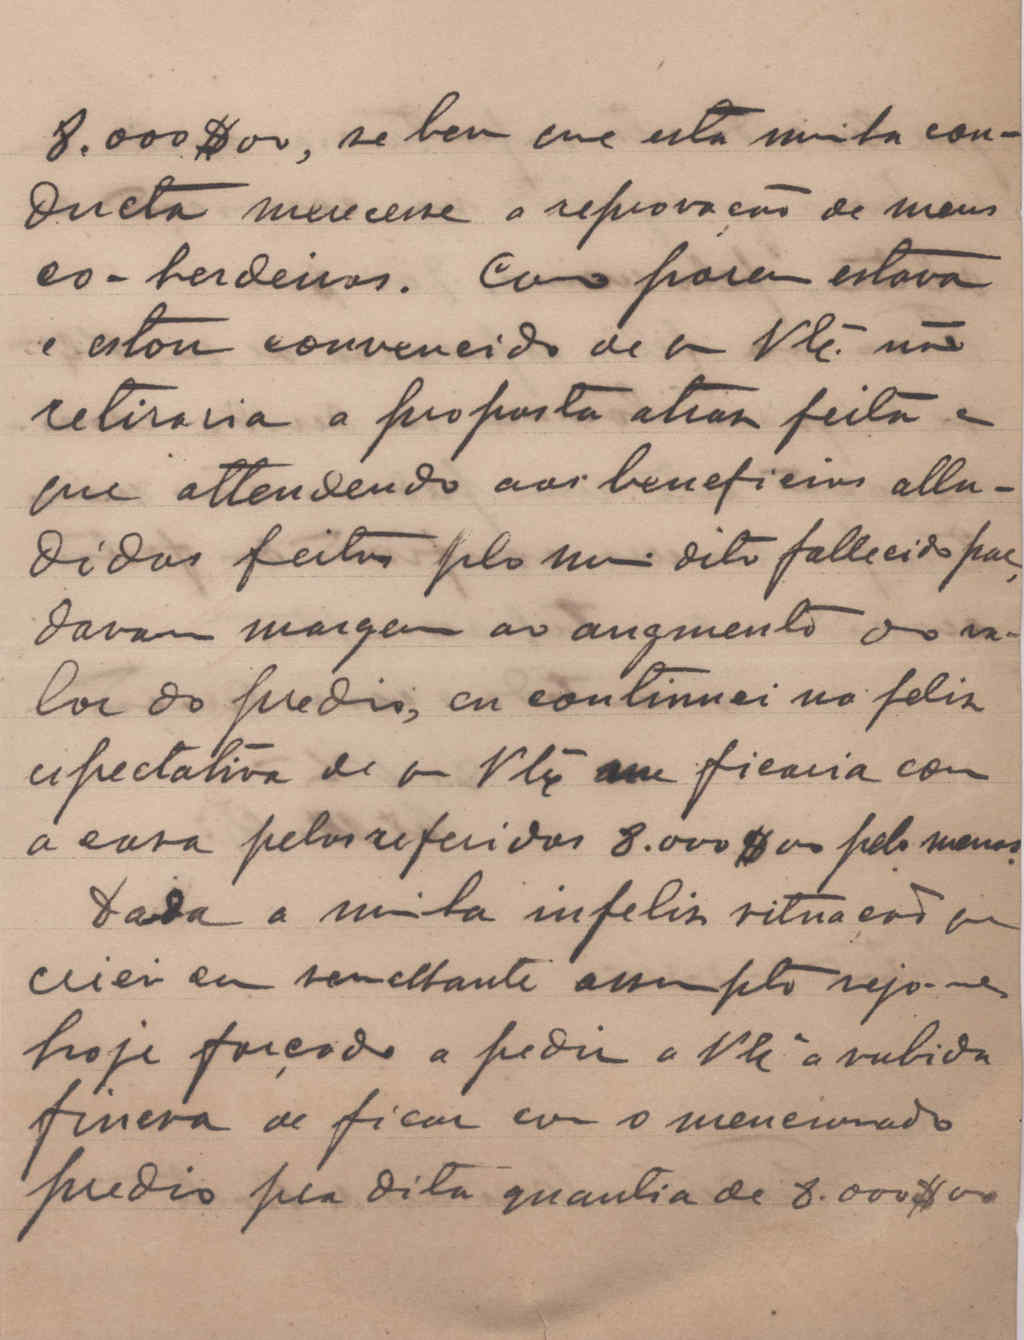 8.000$00, se bem que esta minha con-
ducta merecesse a reprovação de meus
co-herdeiros. Como porem estava
e estou convencido de q̃ V. Excª. não
retiraria a proposta atraz feita e
que attendendo aos beneficios allu-
didos feitos plo meu dito fallecido pae,
davam margem ao augmento do va-
lor do predio, eu continuei na feliz
espectativa de q̃ V. Excª ficaria com
a casa pelos referidos 8.000$00 pelo menos.
Dada a minha infeliz situação que
criei em semelhante assumpto vejo-me
hoje forçado a pedir a V. Excª a subida
fineza de ficar com o mencionado
predio pela dita quantia de 8.000$00